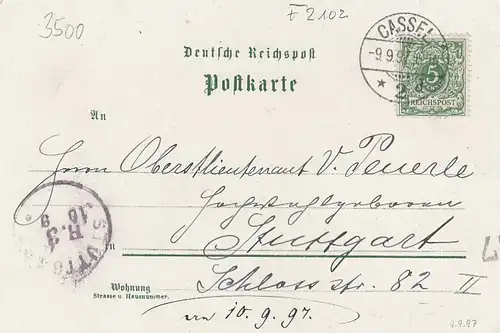 3500
F 2102
CASSEL
-9.9.97
* 2 d
5
REICHSPOST
Deutsche Reichspost
Postkarte
An
Herrn Oberstlieutenant v. Peuerle
Hochwohlgeboren
STUTTG
H.3
10
9
in Stuttgart
Schloss str. 82 II
Wohnung
Strasse u. Hausnummer.
an 10.9.97.
9.9.97